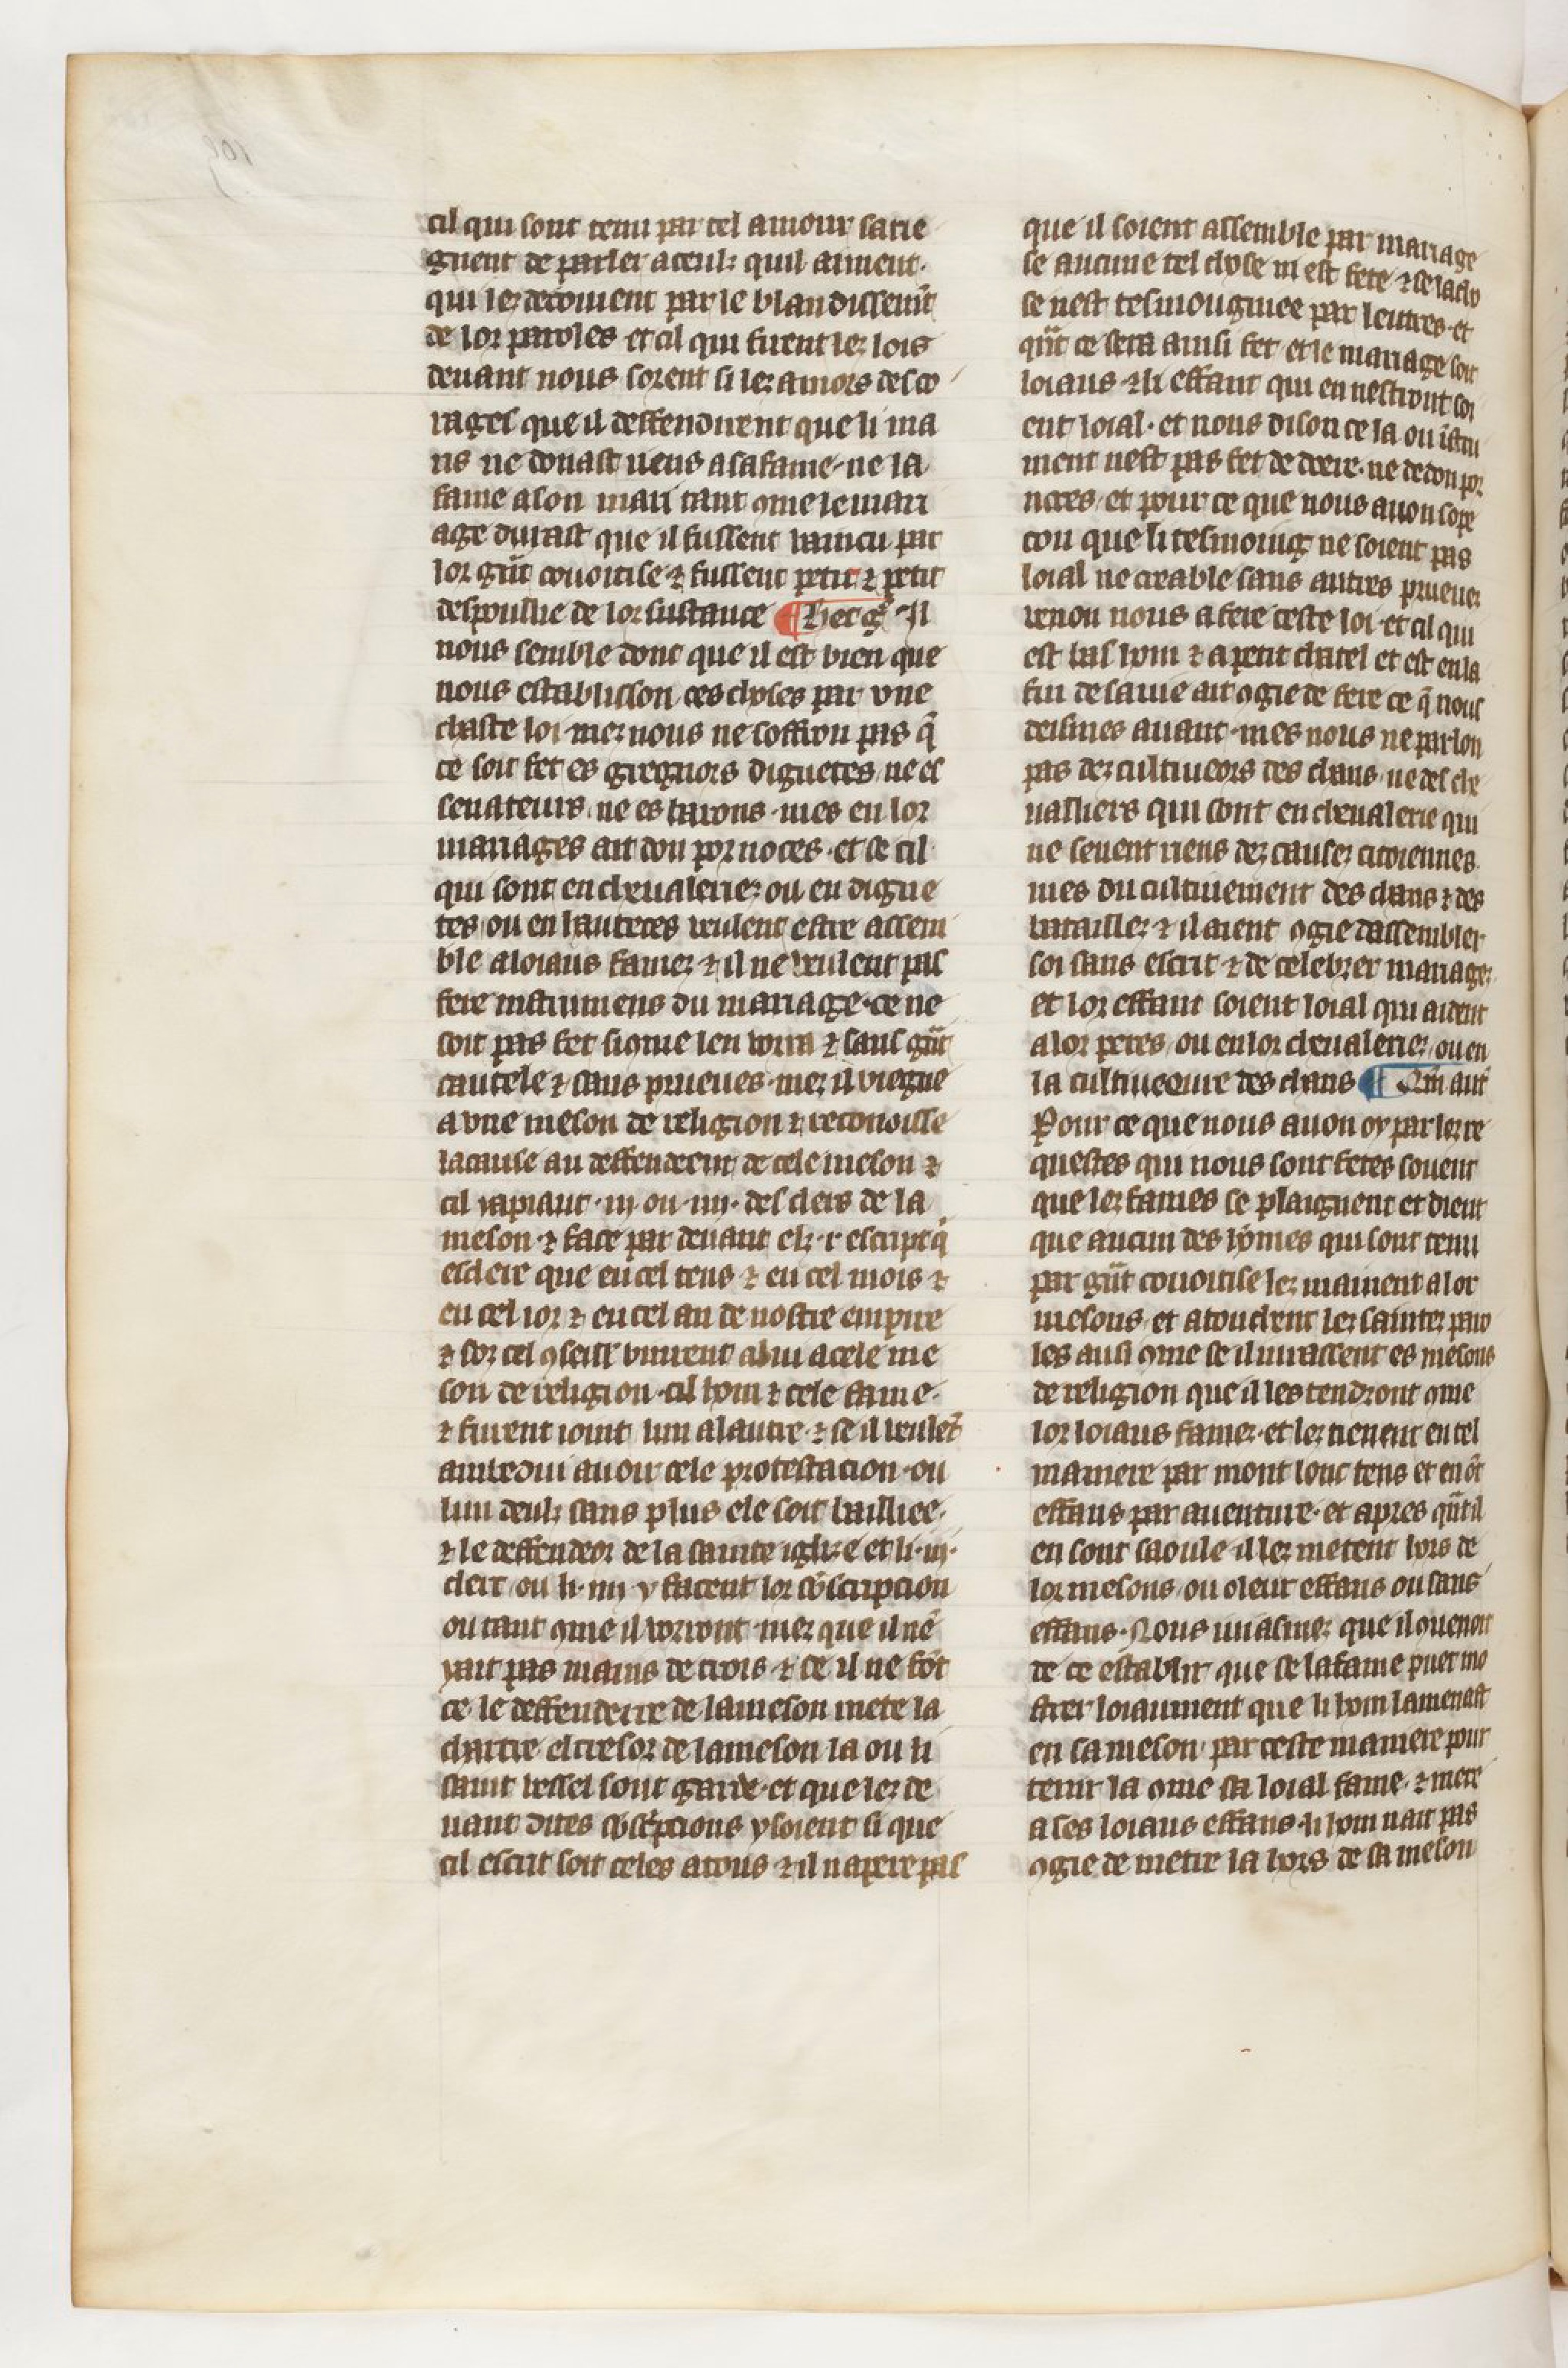 cil qui sont tenu par tel amour satie
gnent de parler a ceulz quil aiment.
qui lez decoiuent par le blandissemt̄
de lor paroles et cil qui firent lez lois
deuant nous sorent si lez amors des co
rages que il deffendirent que li ma
ris ne donast riens a sa fame ne la
fame a son mari tant 9me le mari
age durast que il fussent vaincu par
lor gñt couoitise ⁊ fussent petit ⁊ petit
despoullie de lor sustance ¶ Hec gͥ Il
nous semble donc que il est bien que
nous establisson ces choses par vne
chaste loi mez nous ne soffron pas q̃
ce soit fet es greignors dignetes ne es
senateurs ne es barons mes en lor
mariages ait don por noces et se cil
qui sont en cheualeriez ou en digne
tes ou en hauteces veulent estre assem
ble a loiaus famez ⁊ il ne veulent pas
fere instrumens du mariage ce ne
soit pas fet si 9me len vorra ⁊ sans gñt
cautele ⁊ sans prueues mez il viegne
a vne meson de religion ⁊ reconoisse
la cause au deffendeeur de cele meson ⁊
cil i apiaut .iij. ou .iiij. des clers de la
meson ⁊ face par deuant elz .i. escript q̃
esclere que en cel tens ⁊ en cel mois ⁊
en cel ior ⁊ en cel an de nostre empire
⁊ soz cel 9seill' vinrent a lui a cele me
son de religion cil hom ⁊ cele fame.
⁊ furent ioint lun a lautre ⁊ se il veulẽt
ambedui auoir cele protestacion ou
lun deulz sans plus ele soit bailliee.
⁊ le deffendeor de la sainte iglize et li .iij.
clerc ou li .iiij. y facent lor sõscripcion
ou tant 9me il vorront mez que il nẽ
y ait pas mains de trois ⁊ se il ne fõt
ce le deffenderre de la meson mete la
chartre el tresor de la meson la ou li
saint vessel sont garde et que lez de
uant dites sõscripcions y soient si que
cil escrit soit celes a tous ⁊ il napere pas
que il soient assemble par mariage
se aucune tel chose ni est fete ⁊ se la cho
se nest tesmougniee par lettres et
qñt ce sera ainsi fet et le mariage soit
loiaus ⁊ li effant qui en nestront soi
ent loial. et nous dison ce la ou ĩstru
ment nest pas fet de doere ne de don por
noces et pour ce que nous auon sope
con que li tesmoing ne soient pas
loial ne creable sans autres prueuez
venon nous a fere ceste loi et cil qui
est bas hom ⁊ a petit chatel et est en la
fin de sa uie ait 9gie de fere ce q̃ nous
deismes auant mes nous ne parlon
pas dez cultiueors des chans ne des che
ualliers qui sont en cheualerie qui
ne seuent riens dez causez citoiennes
mes du cultiuement des chans ⁊ des
bataillez ⁊ il aient 9gie dassembler
soi sans escrit ⁊ de celebrer mariagez
et lor effant soient loial qui aident
a lor peres ou en lor cheualeriez ou en
la cultiueoure des chans ¶ Qm̃ aut̃
Pour ce que nous auon oy par lez re
questes qui nous sont fetes souent
que lez fames se plaignent et dient
que aucun des hõmes qui sont tenu
par gñt couoitise lez mainent a lor
mesons et atouchent lez saintez paro
les ausi 9me se il iurassent es mesons
de religion que il les tendront 9me
lor loiaus famez et lez tienent en tel
maniere par mont lonc tens et en õt
effans par auenture et apres qñt il
en sont saoule il lez metent hors de
lor mesons ou o leur effans ou sans
effans. Nous iuiasmez que il 9uenoit
de ce establir que se la fame puet mo
strer loiaument que li hom lamenast
en sa meson par ceste maniere pour
tenir la 9me sa loial fame ⁊ mere
a ses loiaus effans li hom nait pas
9gie de metre la hors de sa meson